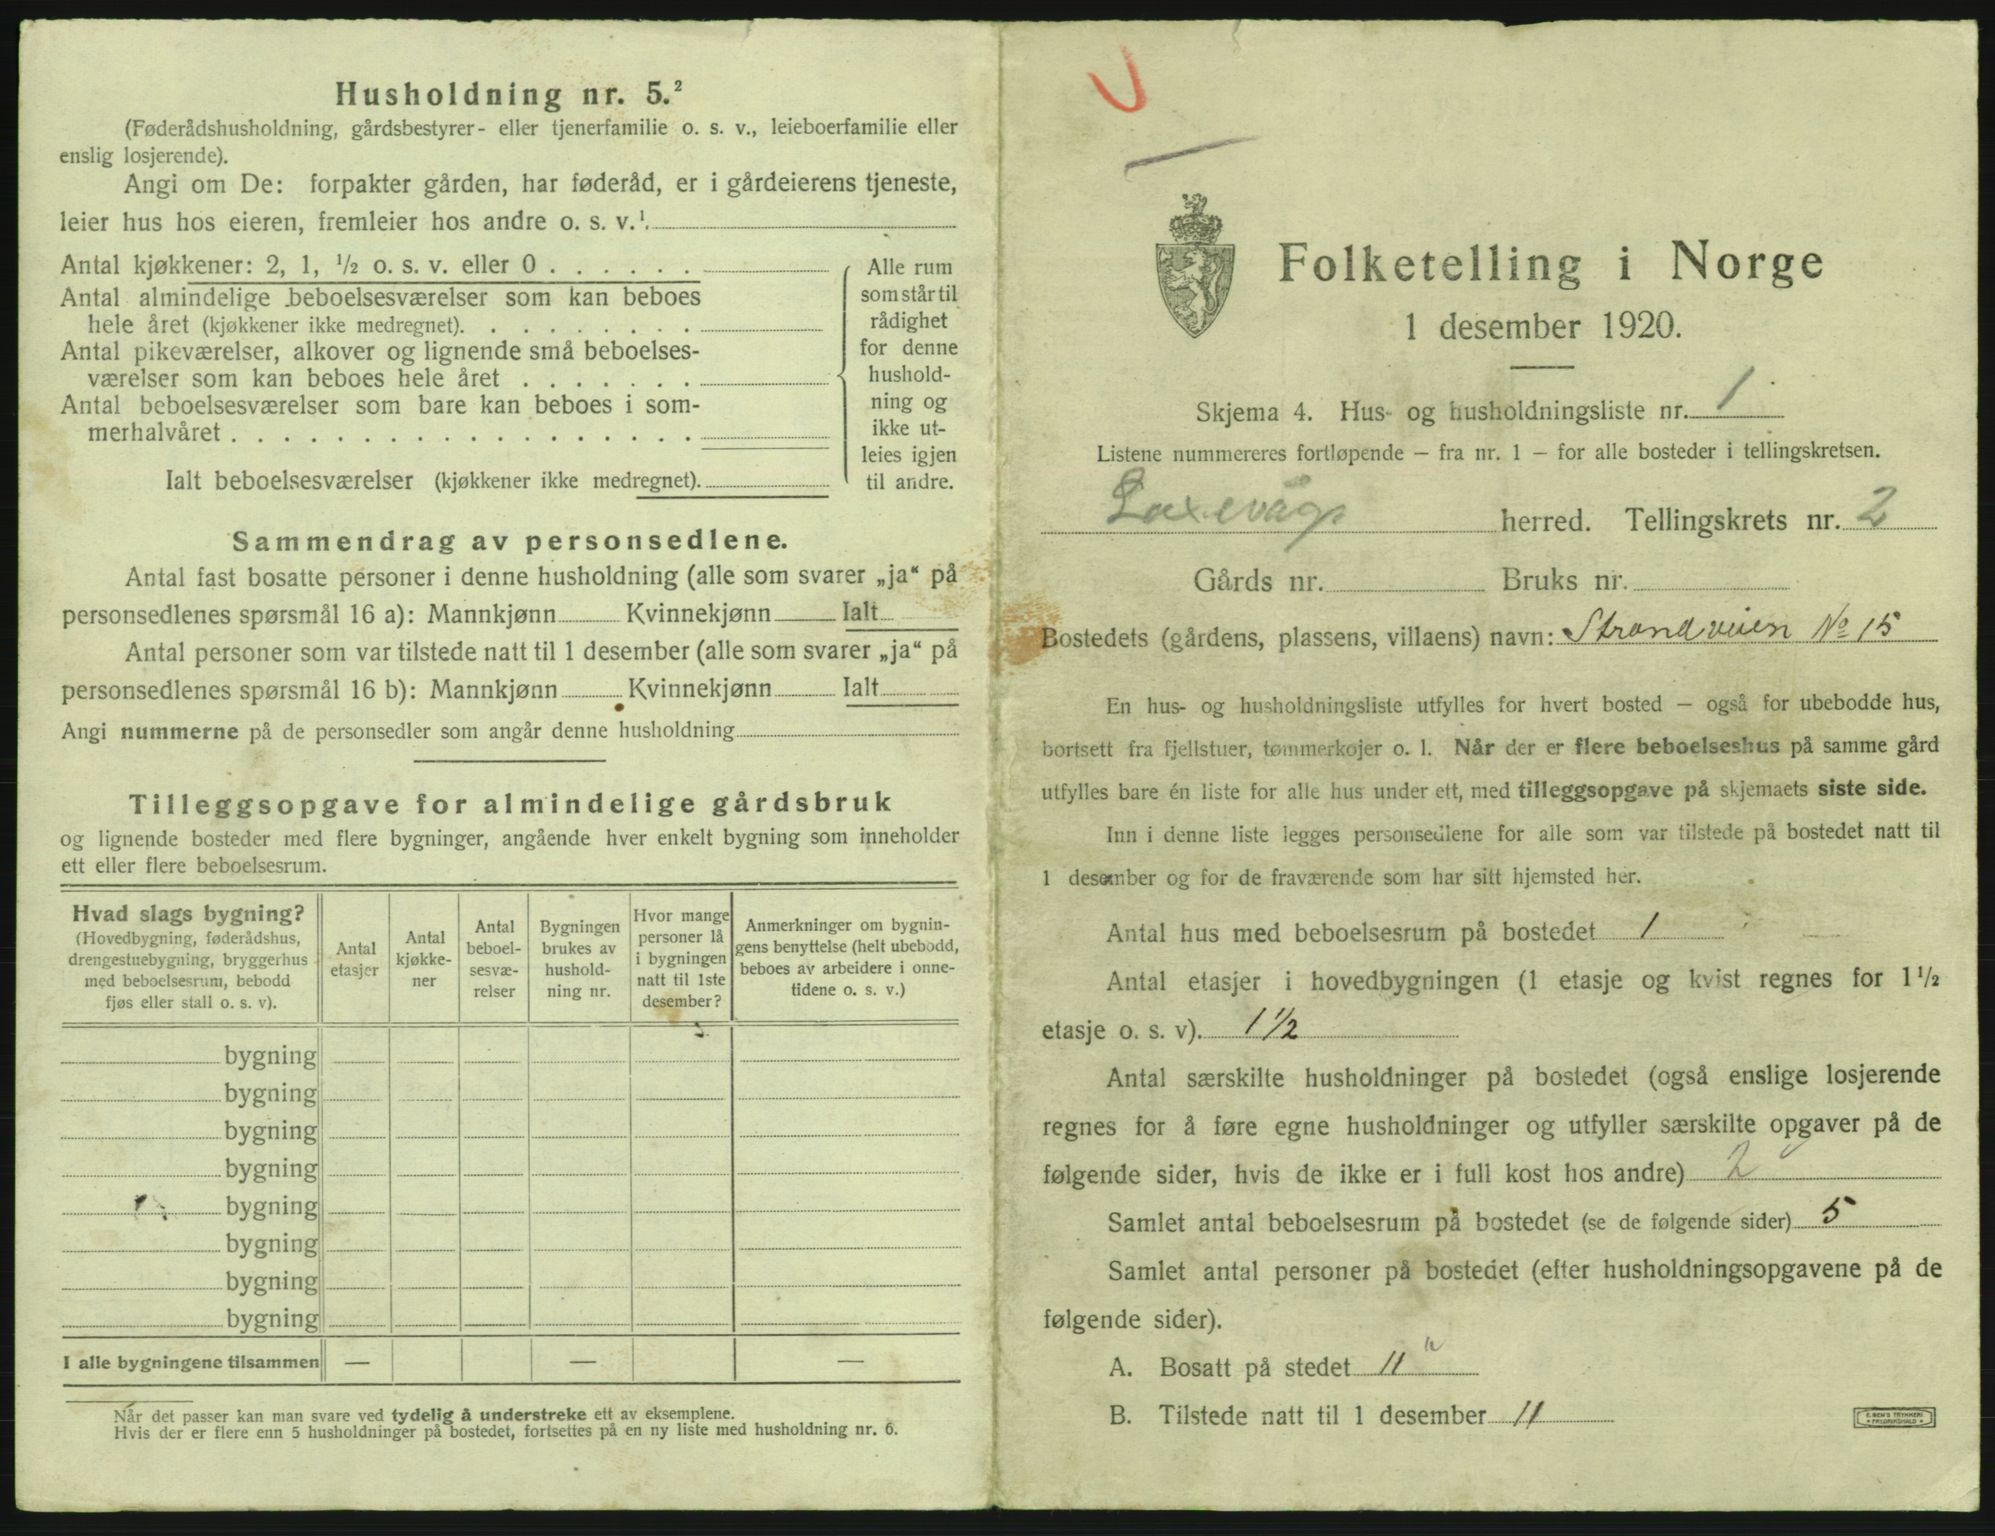 Husholdning nr. 5.²
(Føderådshusholdning, gårdsbestyrer- eller tjenerfamilie o. s. v., leieboerfamilie eller
enslig losjerende).
Angi om De: forpakter gården, har føderåd, er i gårdeierens tjeneste,
leier hus hos eieren, fremleier hos andre o. s. v.¹.
Antal kjøkkener: 2, 1, ½ o. s. v. eller 0 . . . . . .
Antal almindelige beboelsesværelser som kan beboes
hele året (kjøkkener ikke medregnet). . . . . . . . .
Antal pikeværelser, alkover og lignende små beboelses-
værelser som kan beboes hele året . . . . . . .
Antal beboelsesværelser som bare kan beboes i som-
merhalvåret . . . . . . . . . . . . . . . . . .
Ialt beboelsesværelser (kjøkkener ikke medregnet).
Alle rum
som står til
rådighet
for denne
hushold-
ning og
ikke ut-
leies igjen
til andre.
Sammendrag av personsedlene.
Antal fast bosatte personer i denne husholdning (alle som svarer „ja“ på
personsedlenes spørsmål 16 a): Mannkjønn Kvinnekjønn Ialt
Antal personer som var tilstede natt til 1 desember (alle som svarer „ja“ på
personsedlenes spørsmål 16 b): Mannkjønn Kvinnekjønn Ialt
Angi nummerne på de personsedler som angår denne husholdning
Tilleggsopgave for almindelige gårdsbruk
og lignende bosteder med flere bygninger, angående hver enkelt bygning som inneholder
ett eller flere beboelsesrum.
Hvad slags bygning?
(Hovedbygning, føderådshus,
drengestuebygning, bryggerhus
med beboelsesrum, bebodd
fjøs eller stall o. s. v).
Antal
etasjer
Antal
kjøkke-
ner
Antal
beboel-
sesvæ-
relser
Bygningen
brukes av
hushold-
ning nr.
Hvor mange
personer lå
i bygningen
natt til 1ste
desember?
Anmerkninger om bygnin-
gens benyttelse (helt ubebodd,
beboes av arbeidere i onne-
tidene o. s. v.)
bygning
bygning
bygning
bygning
bygning
bygning
bygning
bygning
I alle bygningene tilsammen — — —
Når det passer kan man svare ved tydelig å understreke ett av eksemplene.
Hvis der er flere enn 5 husholdninger på bostedet, fortsettes på en ny liste med husholdning nr. 6.
Folketelling i Norge
1 desember 1920.
Skjema 4. Hus- og husholdningsliste nr. 1
Listene nummereres fortløpende — fra nr. 1 — for alle bosteder i tellingskretsen.
Laxevåg herred. Tellingskrets nr. 2
Gårds nr. Bruks nr.
Bostedets (gårdens, plassens, villaens) navn: Strandveien No 15
En hus- og husholdningsliste utfylles for hvert bosted — også for ubebodde hus,
bortsett fra fjellstuer, tømmerkojer o. l. Når der er flere beboelseshus på samme gård
utfylles bare én liste for alle hus under ett, med tilleggsopgave på skjemaets siste side.
Inn i denne liste legges personsedlene for alle som var tilstede på bostedet natt til
1 desember og for de fraværende som har sitt hjemsted her.
Antal hus med beboelsesrum på bostedet 1
Antal etasjer i hovedbygningen (1 etasje og kvist regnes for 1½
etasje o. s. v). 1½
Antal særskilte husholdninger på bostedet (også enslige losjerende
regnes for å føre egne husholdninger og utfyller særskilte opgaver på de
følgende sider, hvis de ikke er i full kost hos andre) 2
Samlet antal beboelsesrum på bostedet (se de følgende sider) 5
Samlet antal personer på bostedet (efter husholdningsopgavene på de
følgende sider).
A. Bosatt på stedet 11
B. Tilstede natt til 1 desember 11